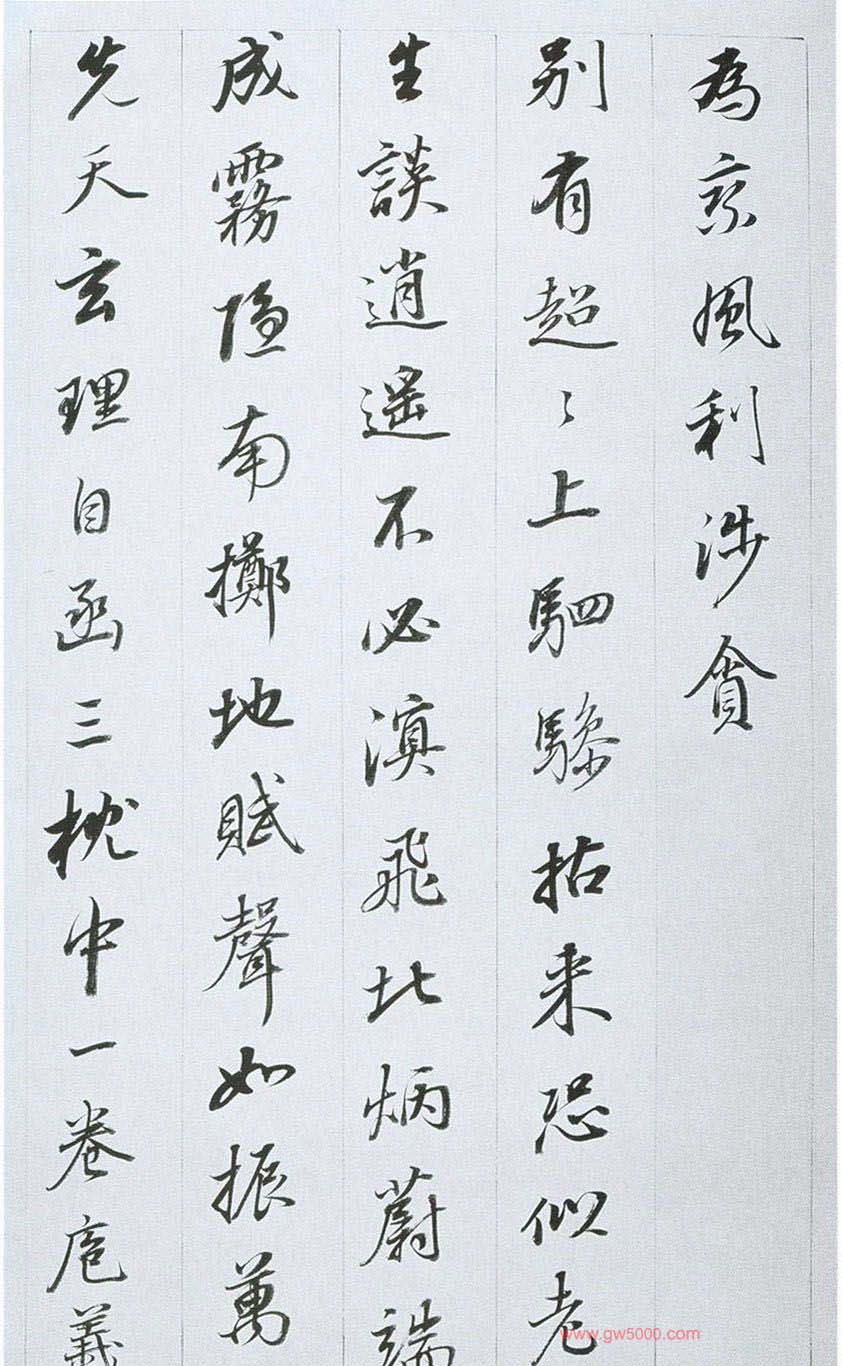 為京風利涉貪
別有超〻上駟驂拈来恐似老
生談逍遥不必溟飛北炳蔚端
成霧隐南擲地賦聲如振萬
先天玄理自函三枕中一卷庖義
www.gw5000.com